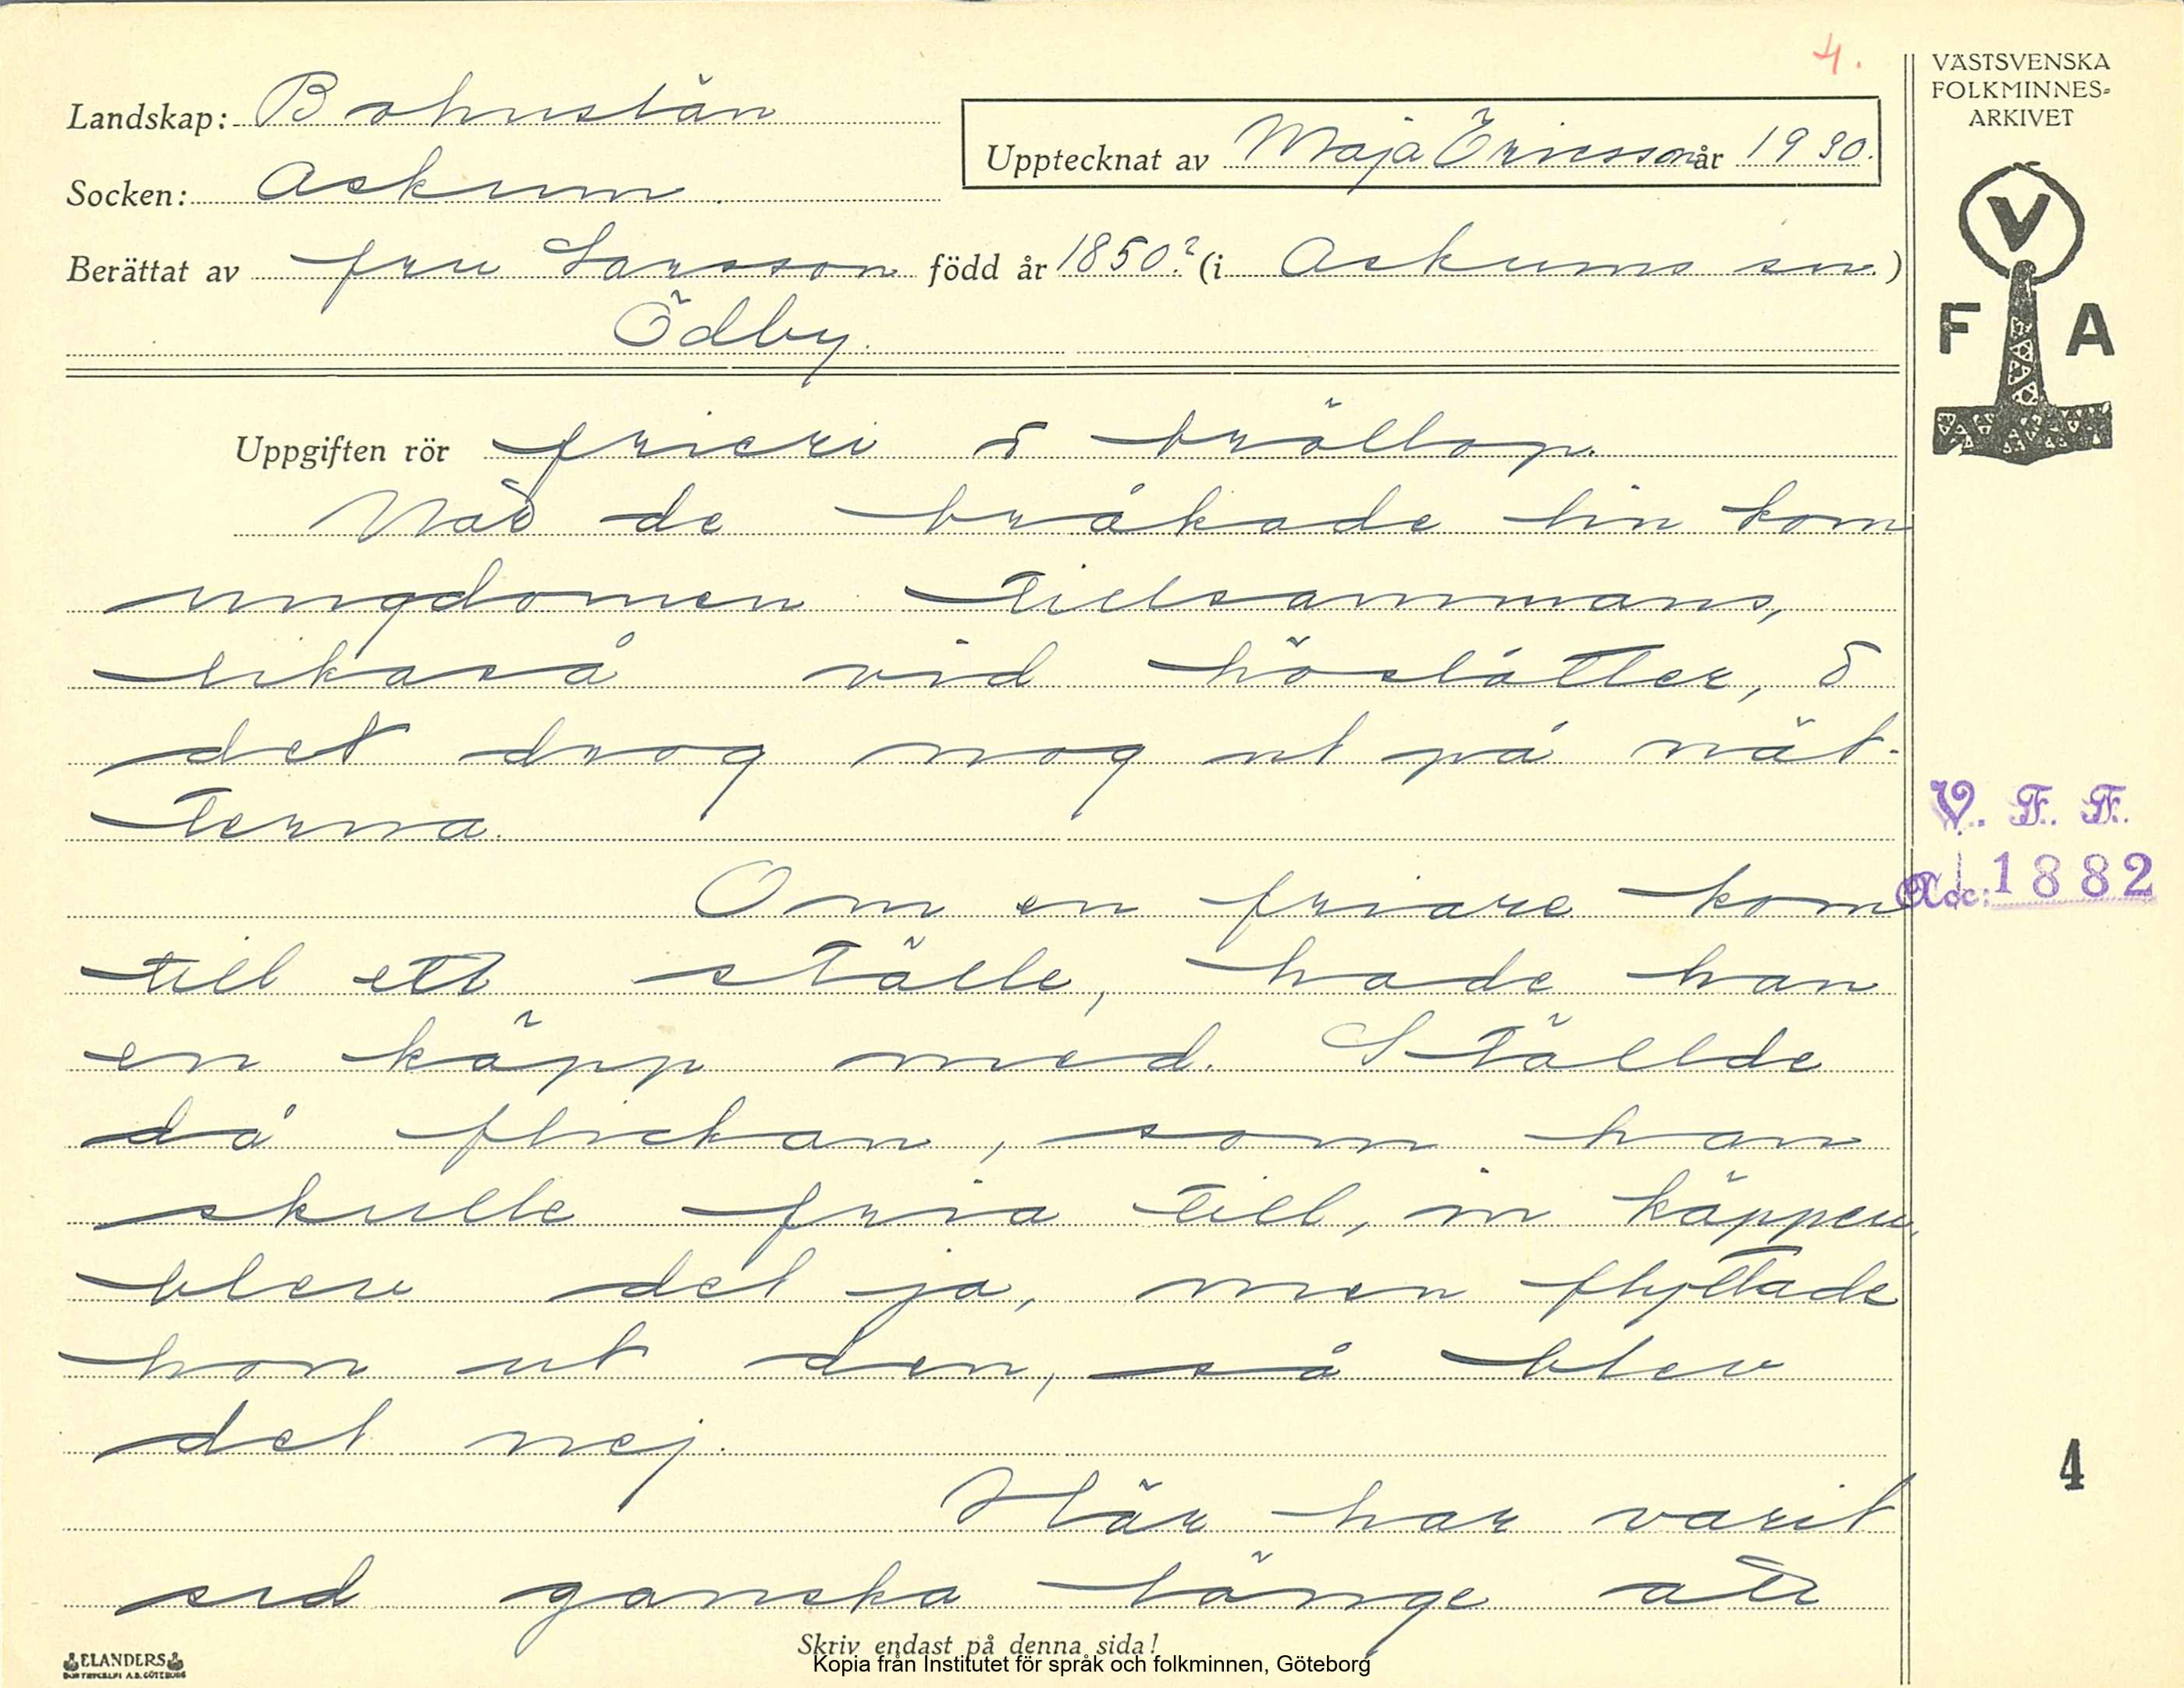 4.
VÄSTSVENSKA
FOLKMINNES-
ARKIVET
V
F A
Landskap: Bohuslän
Upptecknat av Maja Ericsson år 1930.
Socken: Askum
Berättat av fru Larsson född år 1850? (i Askums sn.)
Ödby.
Uppgiften rör frieri & bröllop.
När de bråkade lin kom
ungdomen tillsammans,
likaså vid höslåtter, &
det drog nog ut på nät-
terna.
Om en friare kom
till ett ställe, hade han
en käpp med. Ställde
då flickan, som han
skulle fria till, in käppen,
blev det ja, men flyttade
hon ut den, så blev
det nej.
Här har varit
sed ganska länge att
V. F. F.
Acc: 1882
4
Skriv endast på denna sida!
ELANDERS
BOKTRYCKERI A.B. GÖTEBORG
Kopia från Institutet för språk och folkminnen, Göteborg